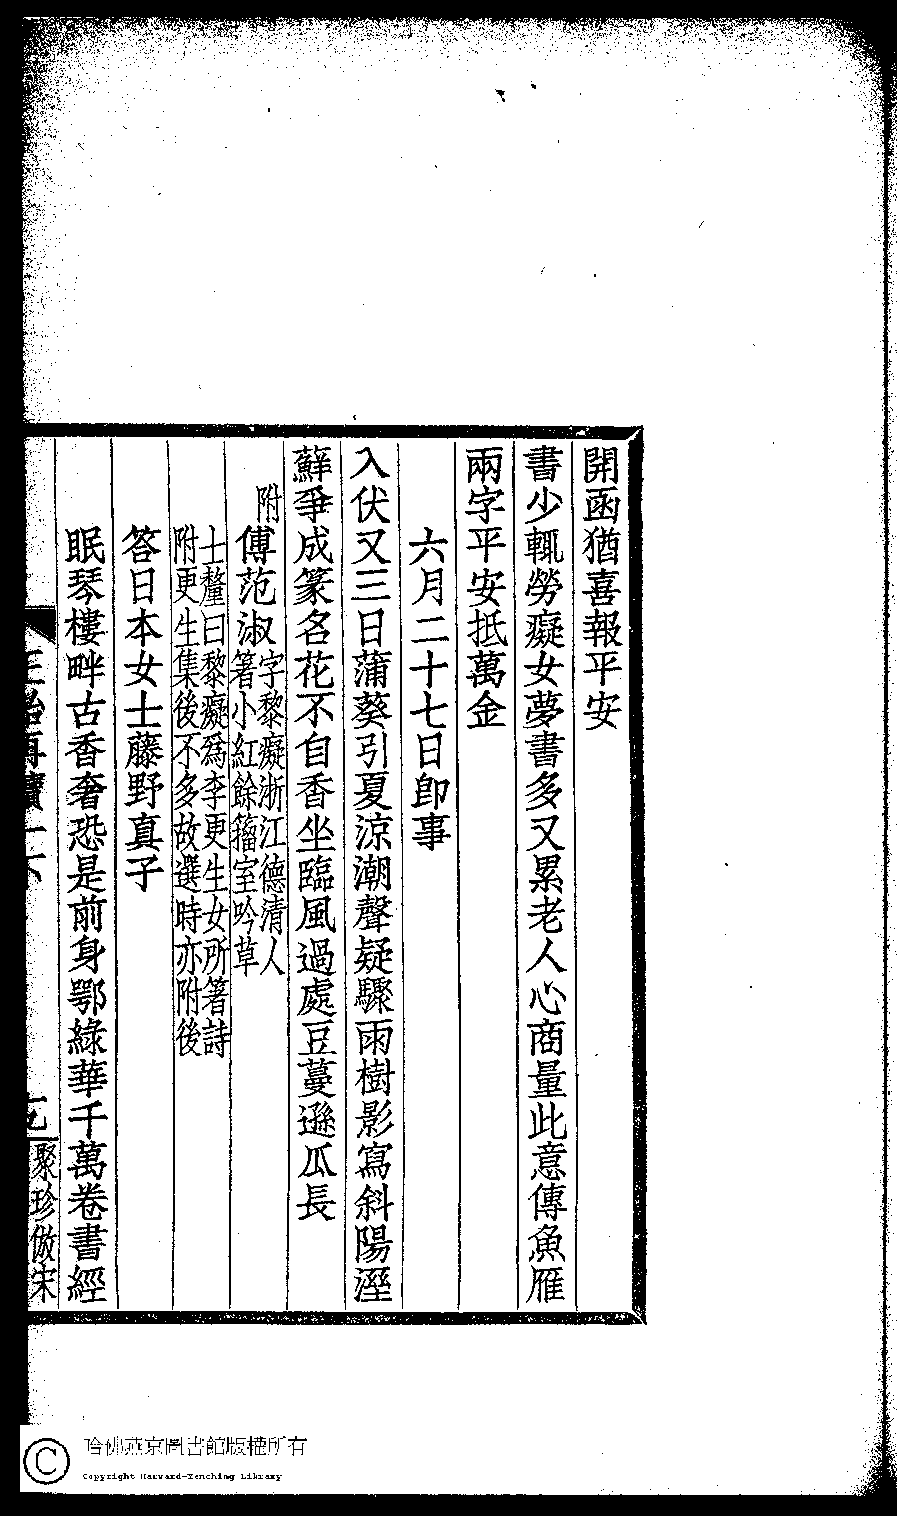 開函猶喜報平安
書少輒勞癡女夢書多又累老人心商量此意傳魚雁
兩字平安抵萬金
六月二十七日卽事
入伏又三日蒲葵引夏涼潮聲疑驟雨樹影寫斜陽溼
蘚爭成篆名花不自香坐臨風過處豆蔓遜瓜長
附
傅范淑
字黎癡浙江德清人
箸小紅餘籒室吟草
士釐曰黎癡爲李更生女所箸詩
附更生集後不多故選時亦附後
答日本女士藤野真子
眠琴樓畔古香奢恐是前身鄂綠華千萬卷書經
聚珍倣宋
哈佛燕京圖書館版權所有
Copyright Harvard-Yenching Library